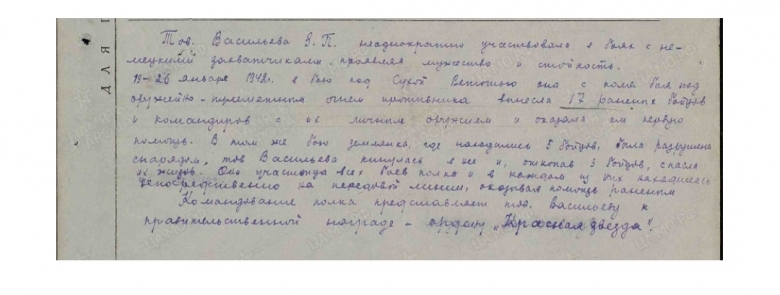 ДЛЯ
Тов. Васильева В.П. неоднократно участвовала в боях с не-
мецкими захватчиками, проявляя мужество и стойкость.
19-26 января 1942г. в бою под Сухой она с поля боя под
оружейно-пулеметным огнем противника вынесла 17 раненых бойцов
и командиров с их личным оружием и оказала им первую
помощь. В том же бою землянка, где находились 5 бойцов, была разрушена
снарядом, тов Васильева кинулась к ней и, откопав 3 бойцов, спасла
их жизнь. Она участница всех боев полка и в каждом из них находилась
непосредственно на передовой линии, оказывая помощь раненым
Командование полка представляет тов. Васильеву к
правительственной награде – ордену „Красная звезда".